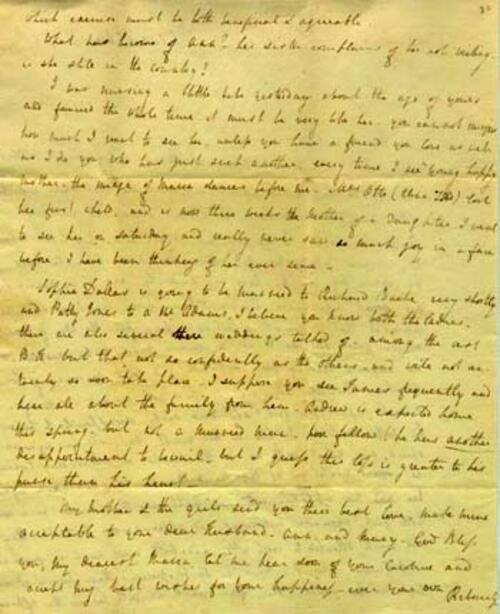 which exercise must be both beneficial & agreeable.
What has become of Ann? her sister complains of her not writing.
is she still in the Country?
I was nursing a little babe yesterday about the age of yours
and fancied the whole time it must be very like her. you can not imagine
how much I want to see her, unless you have a friend you love as well
as I do you, who has just such another. every time I see a young happy
Mother, the image of Maria dances before me. Mrs Otto (Eliza Tod) lost
her first child, and is now three weeks the Mother of a Daughter. I went
to see her on saturday and really never saw so much joy in a face
before. I have been thinking of her ever since.
Sophia Dallas is going to be married to Richard Bache, very shortly
and Patty Jones to a Mr Adams, I believe you know both the ladies.
there are also several there weddings talked of. among the rest
B.G. but that not so confidently as the others, and will not
certainly so soon take place. I suppose you see James frequently and
hear all about the family from him. Andrew is expected home
this spring. but not a married Man. poor fellow! he has another
disappointment to lament. but I guess this loss is greater to his
purse than his heart.
My Mother & the girls send you their best love. make mine
acceptable to your dear Husband. Ann, and Henry. God Bless
you, My dearest Maria, let me hear soon of your Caroline and
accept my best wishes for your happiness. ever your own Rebecca